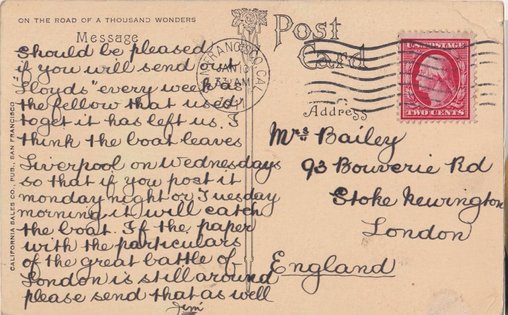 ON THE ROAD OF A THOUSAND WONDERS
Message
Post
Card
Address
Should be pleased
if you will send out
Lloyds" every week as
the fellow that used
to get it has left us. I
think the boat leaves
Liverpool on Wednesdays
so that if you post it
monday night or Tuesday
morning it will catch
the boat. If the paper
with the particulars
of the great battle of
London is still around
please send that as well
Jim
Mrs Bailey
93 Bouverie Rd
Stoke Newington
London
England
CALIFORNIA SALES CO., PUB., SAN FRANCISCO
FRANCISCO, CAL.
JAN 10
U.S. POSTAGE
TWO CENTS